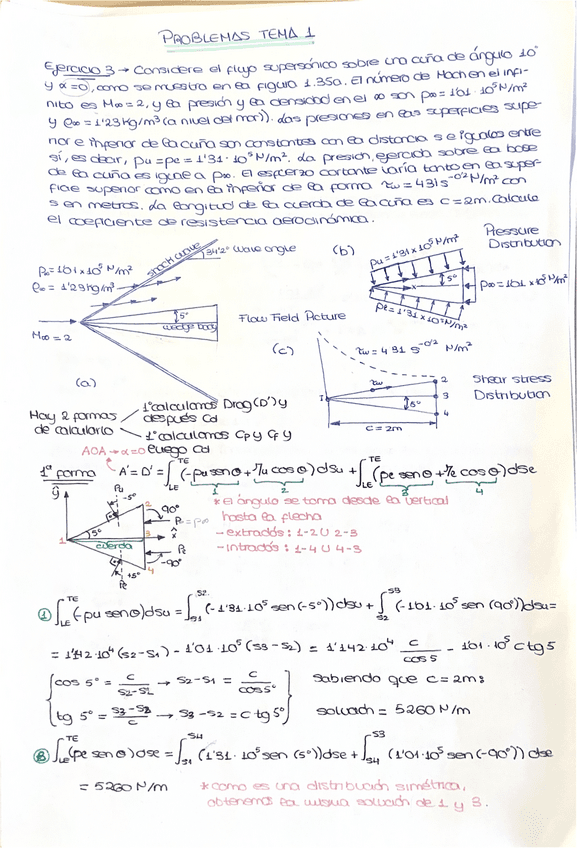 PROBLEMAS TEMA 1
Ejercicio 3 → Considere el flujo supersónico sobre una cuña de ángulo 10°
y α=0, como se muestra en la figura 1.35a. El número de Mach en el infi-
nito es M∞ = 2, y la presión y la densidad en el ∞ son p∞ = 1'01·10⁵ N/m²
y ϱ∞ = 1'23 kg/m³ (a nivel del mar)). Las presiones en las superficies supe-
rior e inferior de la cuña son constantes con la distancia s e iguales entre
sí, es decir, pu = pe = 1'31·10⁵ N/m². La presión ejercida sobre la base
de la cuña es igual a p∞. El esfuerzo cortante varía tanto en la super-
ficie superior como en la inferior de la forma τw = 431 s^-0'2 N/m² con
s en metros. La longitud de la cuerda de la cuña es c = 2m. Calcule
el coeficiente de resistencia aerodinámica.
shock wave
34'2° wave angle
p∞ = 1'01 x 10⁵ N/m²
ϱ∞ = 1'23 kg/m³
M∞ = 2
5°
wedge body
(a)
Flow Field Picture
(b)
Pressure
Distribution
pu = 1'31 x 10⁵ N/m²
5°
x
p∞ = 1'01 x 10⁵ N/m²
pe = 1'31 x 10⁵ N/m²
(c)
τw = 431 s^-0'2 N/m²
Shear stress
Distribution
τw
1
2
3
4
5°
c = 2m
Hay 2 formas
de calcularlo
1° calculamos Drag (D') y
después Cd
1° calculamos Cp y Cf y
luego Cd
AOA → α=0
1ª forma
A' = D' = ∫_LE^TE (-pu senθ + τu cosθ) dsu + ∫_LE^TE (pe senθ + τe cosθ) dse
1 2 3 4
ŷ
Pu
-5°
90°
2
P∞ = p∞
1
5°
cuerda
3
x̂
4
+5°
-90°
* El ángulo se toma desde la vertical
hasta la flecha
- extradós: 1-2 ∪ 2-3
- intradós: 1-4 ∪ 4-3
① ∫_LE^TE (-pu senθ) dsu = ∫_S1^S2 (-1'31·10⁵ sen(-5°)) dsu + ∫_S2^S3 (-1'01·10⁵ sen(90°)) dsu =
= 1'142·10⁴ (s2-s1) - 1'01·10⁵ (s3-s2) = 1'142·10⁴ c/cos5 - 1'01·10⁵ c tg5
cos 5° = c/(s2-s1) → s2-s1 = c/cos5°
sabiendo que c = 2m:
→ s3-s2 = c tg5°
solución = 5260 N/m
③ ∫_LE^TE (pe senθ) dse = ∫_S1^S4 (1'31·10⁵ sen(5°)) dse + ∫_S4^S3 (1'01·10⁵ sen(-90°)) dse
= 5260 N/m
* como es una distribución simétrica,
obtenemos la misma solución de 1 y 3.